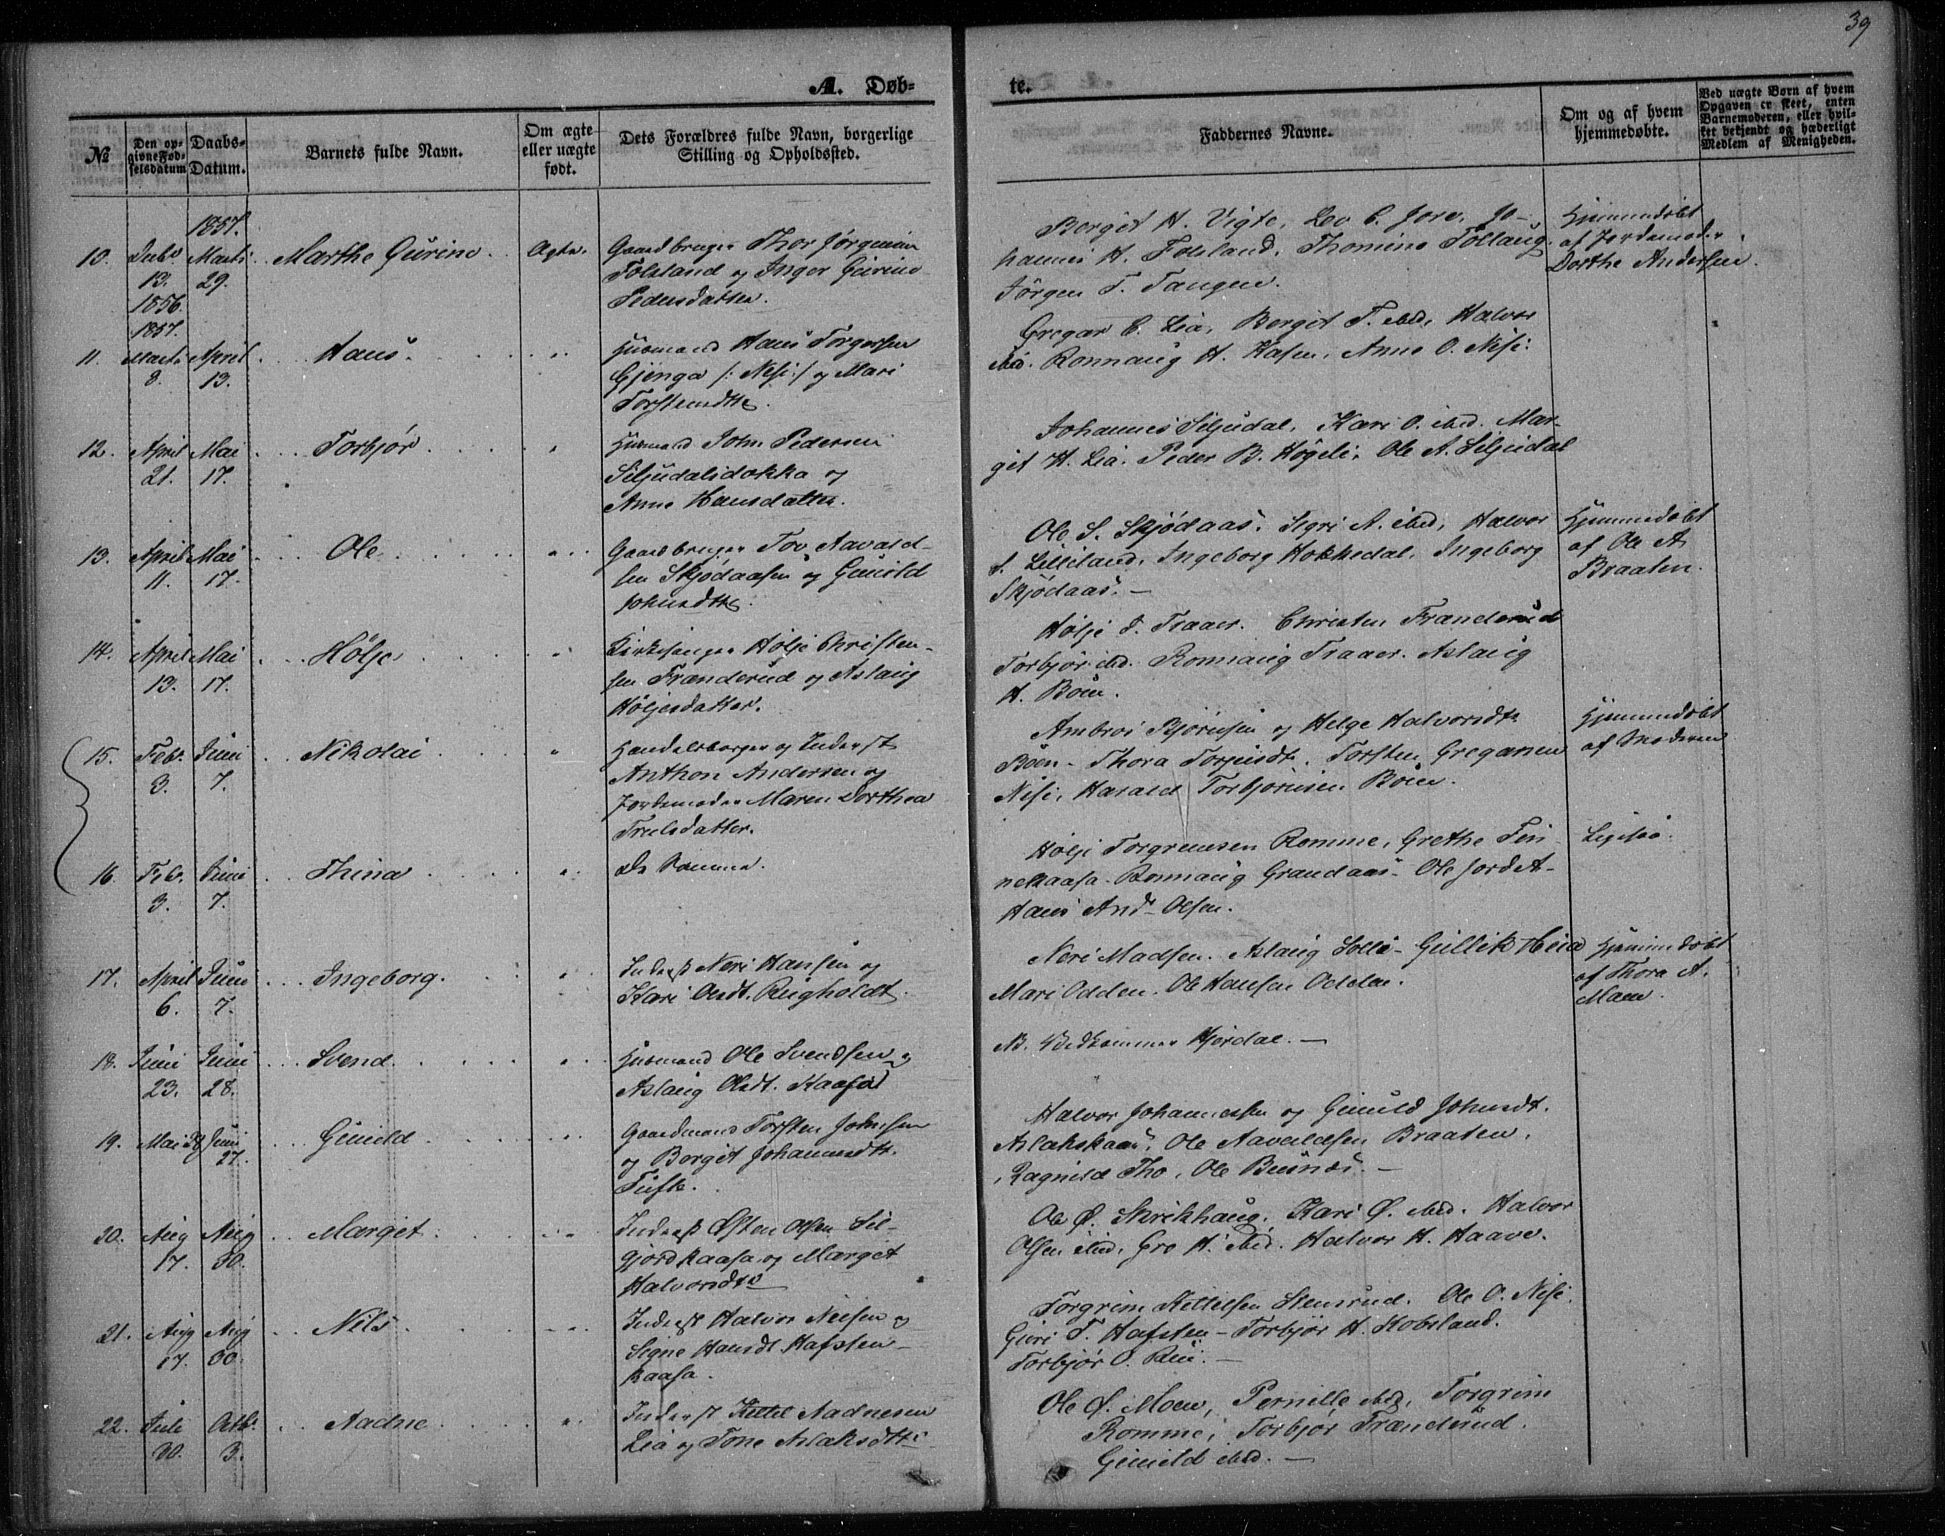 39
A. Døb-
te.
No
Den op-
givne Fød-
selsdatum
Daabs-
Datum.
Barnets fulde Navn.
Om ægte
eller uægte
født.
Dets Forældres fulde Navn, borgerlige
Stilling og Opholdssted.
Faddernes Navne.
Om og af hvem
hjemmedøbte.
Ved uægte Børn af hvem
Opgaven er skeet, enten
Barnemoderen, eller hvil-
ket bekjendt og hæderligt
Medlem af Menigheden.
10.
Decbr
13.
1856.
1857.
Marts
29.
Marthe Gurine
Ægte.
Gaardbruger Thor Jørgensen
Folsland og Inger Gurine
Pedersdatter.
Bergit H. Vigte, Lev C. Jore, Jo-
hannes H. Folsland, Thomine Tollaug.
Jörgen T. Tangen.
Hjemmedøbt
af Jordemoder
Dorthe Andersen.
11.
1857.
Marts
8.
April
13.
Hans
Husmand Hans Torgersen
Gjenga /: Nesi :/ og Mari
Torstensdtr.
Gregar C. Lia, Bergit T. ibid, Halvor
ibid. Ronnaug H. Hasen, Anne O. Nesi.
12.
April
21.
Mai
17.
Torbjør
Husmand John Pedersen
Siljudalsdokka og
Anne Hansdatter.
Johannes Siljudal, Kari O. ibid. Mar-
git H. Lia. Peder B. Høgeli, Ole A. Siljudal
13.
April
11.
Mai
17.
Ole
Gaardbruger Tov Aavald-
sen Skjødaasen og Gunild
Johnsdtr.
Ole S. Skjødaas. Sigri A. ibid, Halvor
S. Lilleland, Ingeborg Hokkedal, Ingeborg
Skjødaas. —
Hjemmedøbt
af Ole A
Braaten.
14.
April
13.
Mai
17.
Hölje
Kirkesanger Hölje Christen-
sen Frænderud og Aslaug
Höljesdatter.
Hölje S. Traaer. Christen Frænderud
Torbjør ibid. Ronnaug Traaer. Aslaug
H. Böen.
15.
Febr.
3.
Juni
7.
Nikolai
Handelsborger og Inderst
Anthon Andersen og
Jordemoder Maren Dorthea
Truelsdatter.
Ambros Bjørnsen og Helge Halvorsdtr
Böen - Thora Torjusdt. Torsten Gregarsen
Nesi, Harald Torbjørnsen Böen.
Hjemmedøbt
af Moderen
16.
Febr.
3.
Juni
7.
Thina
De Samme.
Hölje Torgrimsen Romme, Grethe Fin
nekaasa - Ronnaug Grandaas - Ole Jordet -
Hans And. Olsen.
Ligesaa.
17.
April
6.
Juni
7.
Ingeborg.
Inderst Neri Hansen og
Kari Olsdt. Rugholdt.
Neri Madsen. Aslaug Solli - Gullik Heia
Mari Odden. Ole Hansen Odden.
Hjemmedøbt
af Thora A.
Moen.
18.
Juni
23.
Juni
28.
Svend.
Husmand Ole Svendsen og
Aslaug Olsdt. Kaasa
NB. Vedkommer Hjerdal. —
19.
Mai
Juni
27.
Gunild
Gaardmand Torsten Johnsen
og Borgit Johannesdtr.
Tufte.
Halvor Johannessen og Gunild Johnsdt.
Aslakskaas, Ole Aavaldsen Braaten,
Ragnild Tho, Ole Buenes. —
20.
Aug
17.
Aug
30.
Marget.
Inderst Østen Olsen Sil-
gjordkaasa og Marget
Halvorsdtr
Ole Ø. Skrikhaug, Kari Ø. ibid. Halvor
Olsen ibid, Gro H. ibid. Halvor H. Haave.
21.
Aug
17.
Aug
30.
Nils
Inderst Halvor Nielsen og
Signe Hansdt. Hafsten-
kaasa.
Torgrim Kittelsen Stensrud. Ole O. Nesi
Guri T. Hafsten - Torbjør H. Kobeland.
Torbjør O. Rui. —
22.
Juli
30.
Octb.
3.
Aadne
Inderst Kittel Aadnesen
Lia og Tone Aslaksdtr
Ole Ø. Moen, Pernille ibid, Torgrim
Romme, Torbjør Frænderud.
Gunild ibid. —